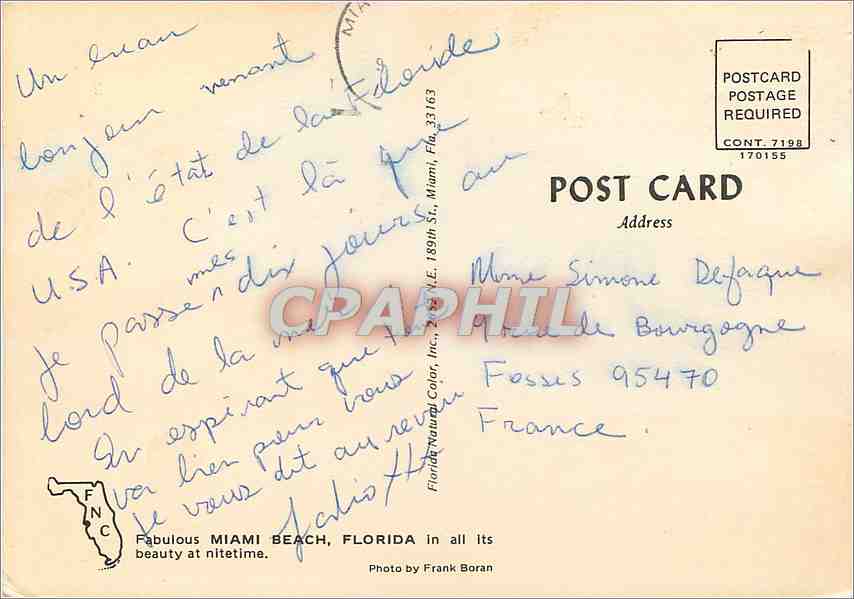 Un
bonjour venant
de l'état de la Floride
USA. C'est là que
je passe mes dix jours au
bord de la mer
En espérant que tout
va bien pour vous
je vous dit au revoir
MIA
POSTCARD
POSTAGE
REQUIRED
CONT. 7198
170155
POST CARD
Address
Mme Simone Defaque
9 rue de Bourgogne
Fosses 95470
France.
Florida Natural Color, Inc., N.E. 189th St., Miami, Fla. 33163
CPAPHIL
FNC
Fabulous MIAMI BEACH, FLORIDA in all its
beauty at nitetime.
Photo by Frank Boran